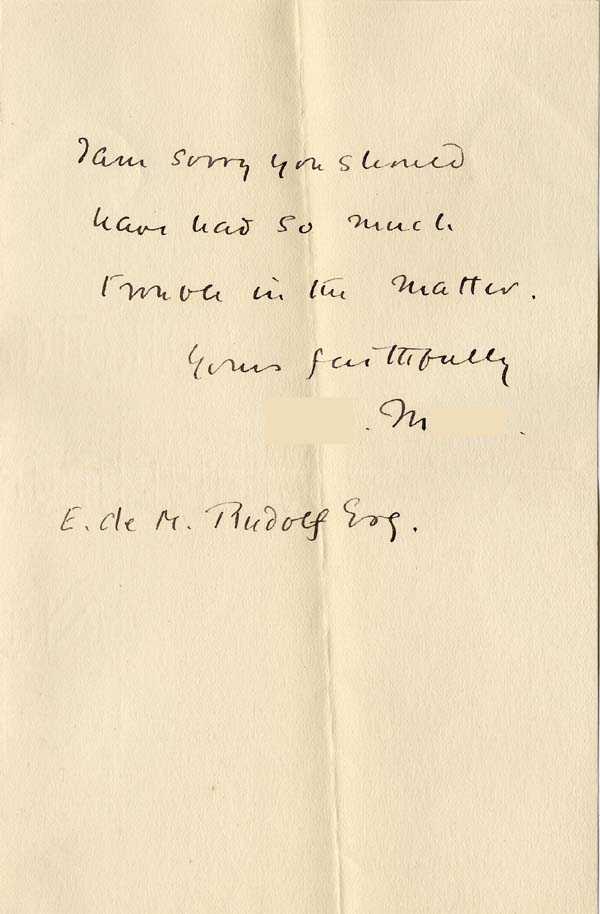 I am sorry you should
have had so much
trouble in the matter.
Yours faithfully
. M .
E. de M. Rudolf Esq.